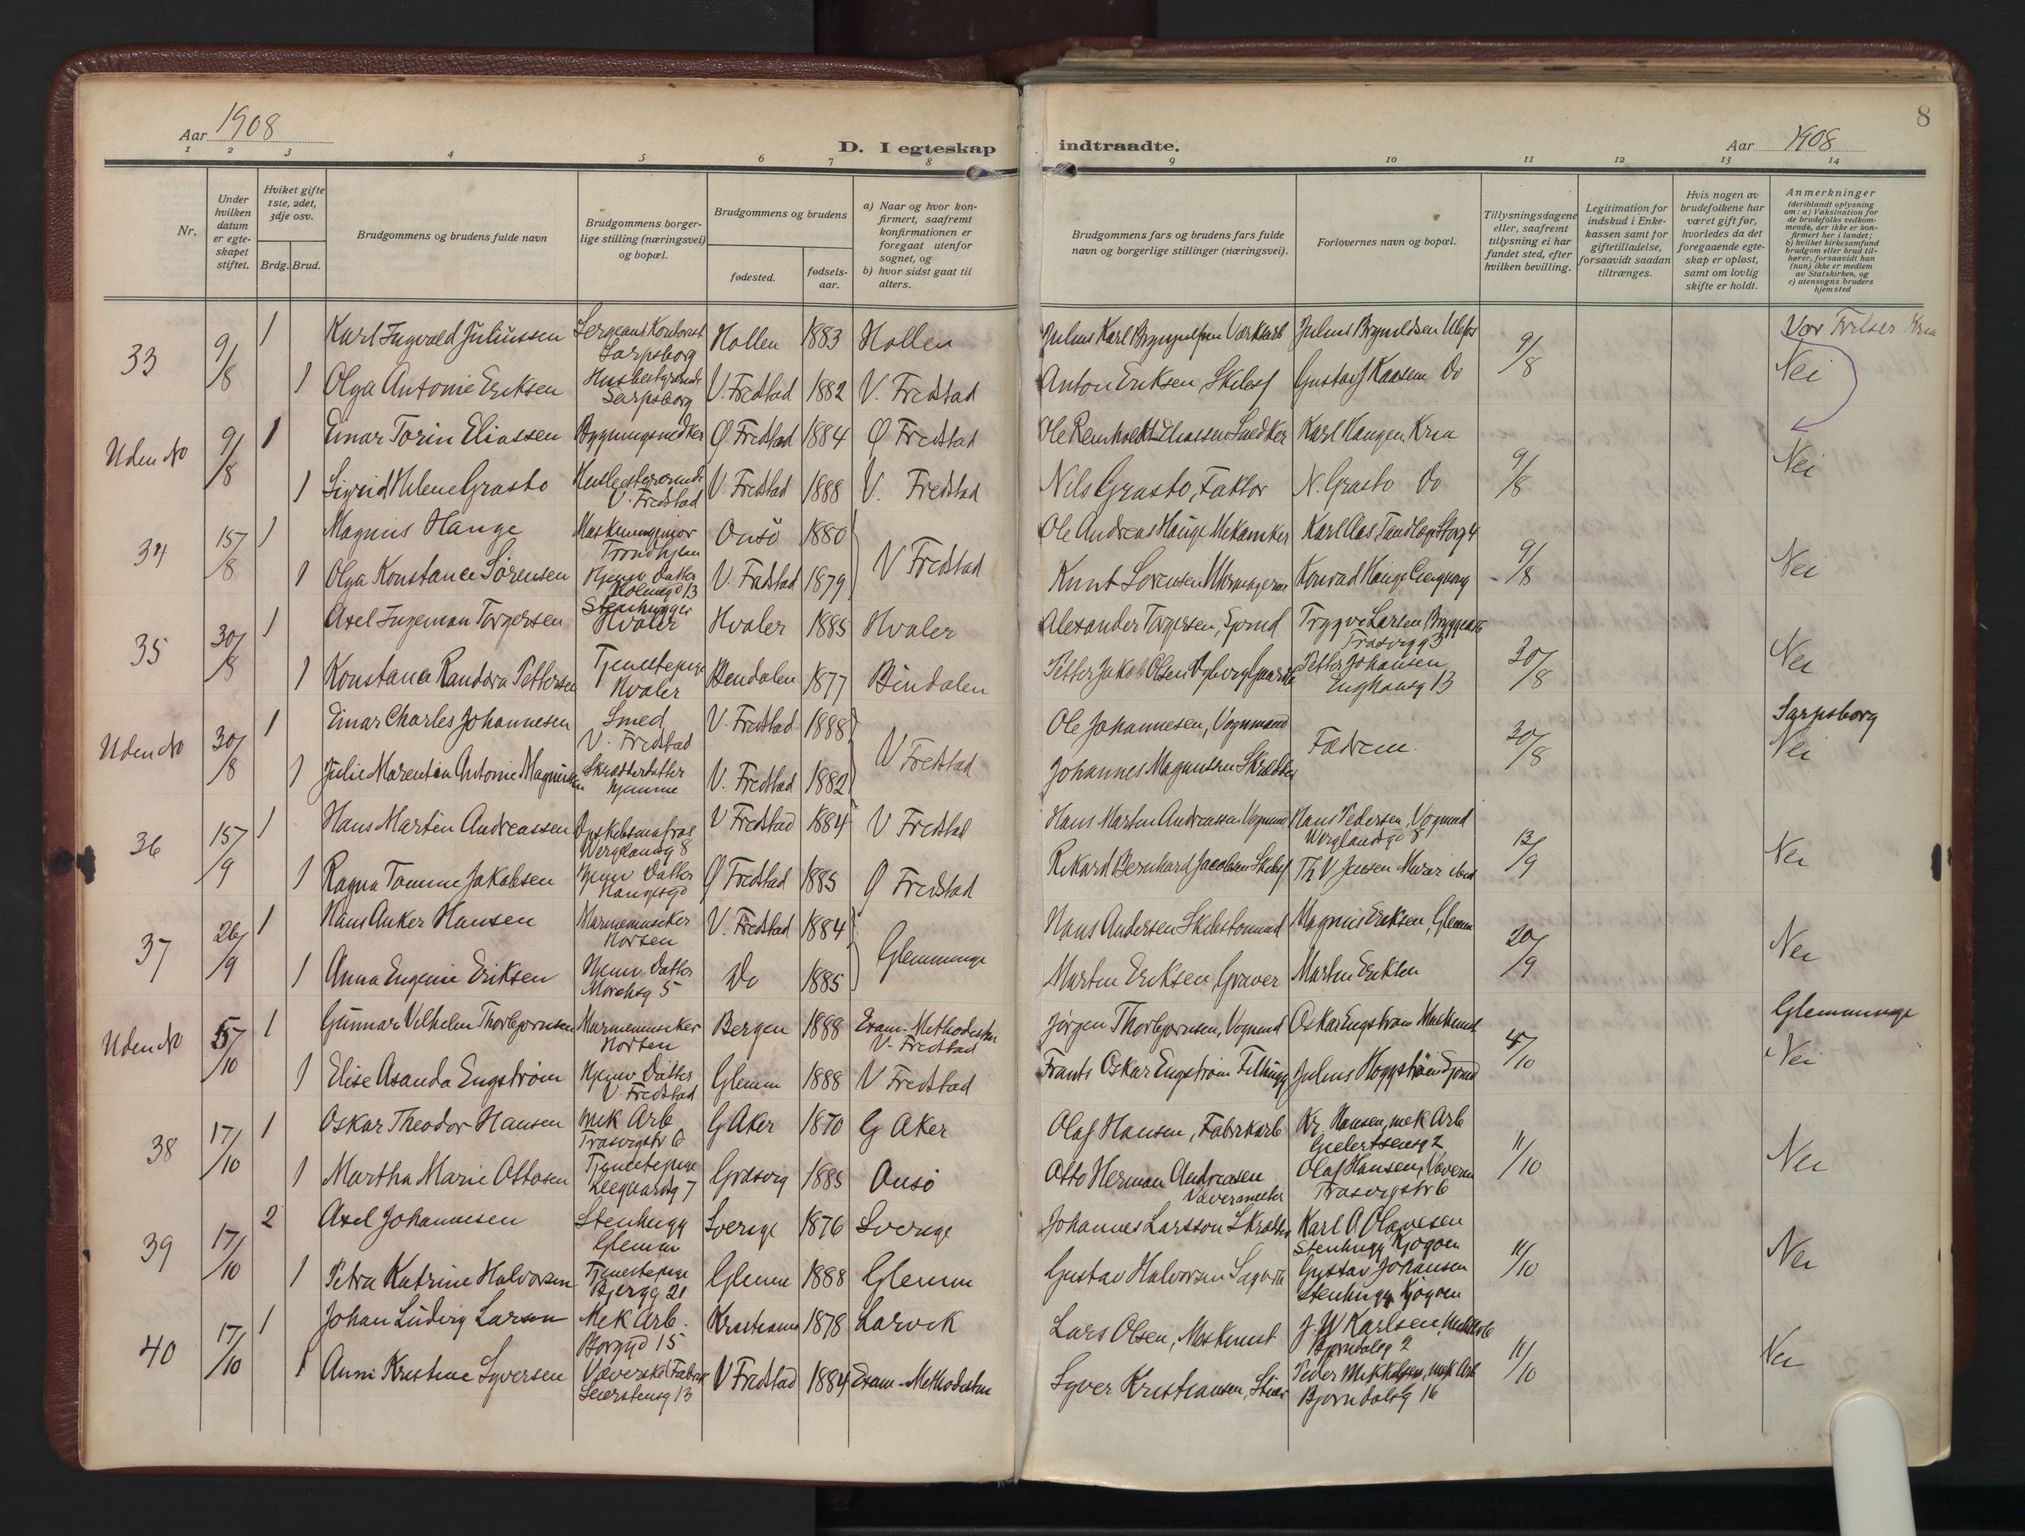 8
Aar 1908
D. I egteskap indtraadte.
Aar 1908
1 2 3 4 5 6 7 8 9 10 11 12 13 14
Nr.
Under hvilken datum er egteskapet stiftet.
Hviket gifte 1ste, 2det, 3dje osv.
Brdg. Brud.
Brudgommens og brudens fulde navn
Brudgommens borgerlige stilling (næringsvei) og bopæl.
Brudgommens og brudens
fødested.
fødselsaar.
a) Naar og hvor konfirmert, saafremt konfirmationen er foregaat utenfor sognet, og
b) hvor sidst gaat til alters.
Brudgommens fars og brudens fars fulde navn og borgerlige stillinger (næringsvei).
Forlovernes navn og bopæl.
Tillysningsdagene eller, saafremt tillysning ei har fundet sted, efter hvilken bevilling.
Legitimation for indskud i Enkekassen samt for giftetilladelse, forsaavidt saadan tiltrænges.
Hvis nogen av brudefolkene har været gift før, hvorledes da det foregaaende egteskap er opløst, samt om lovlig skifte er holdt.
Anmerkninger
(deriblandt oplysning om: a) Vaksination for de brudefolks vedkommende, der ikke er konfirmert her i landet; b) hvilket kirkesamfund brudgom eller brud tilhører, forsaavidt han (hun) ikke er medlem av Statskirken, og c) utensogns bruders hjemsted
33 9/8 1 Karl Ingvald Juliussen Sarpsborg Hollen 1883 Hollen Julius Brynildsen 9/8
1 Olga Antonie Eriksen Sarpsborg V. Fredstad 1882 V. Fredstad Anton Eriksen Gustav Kaasen Do Nei
Uden No 9/8 1 Einar Torin Eliassen Bygningssnedker Ø Fredstad 1884 Ø Fredstad Karl Haugen Kria 9/8
1 Sigrid Helene Grasto V. Fredstad V Fredstad 1888 V. Fredstad Nils Grasto, Faktor N. Grasto Do Nei
34 15/8 1 Magnus Hauge Trondhjem Onsö 1880 V Fredstad Ole Andreas Hauge Mekaniker Karl Aas 9/8
1 Olga Konstance Sörensen Hjemv Datter V. Fredstad 1879 Knut Sorensen Konrad Hauge Nei
35 30/8 1 Axel Ingeman Torgersen Stenhugger Hvaler Hvaler 1885 Hvaler Alexander Torgersen, Trygve Larsen 30/8
1 Konstance Randora Pettersen Tjenestepige Hvaler Bindalen 1877 Bindalen Petter Jakob Olsen Petter Johansen Enghausg 13 Nei
Uden No 30/8 1 Einar Charles Johannesen Smed V. Fredstad V. Fredstad 1888 V Fredstad Ole Johannesen, Vognmand Fædrene. 30/8 Sarpsborg
1 Julie Marentin Antonie Magnussen Skrædderdatter hjemme V. Fredstad 1882 Johannes Magnussen Nei
36 15/9 1 Hans Martin Andreassen Werglandsg 8 V Fredstad 1884 V Fredstad Hans Martin Andreassen Hans Pedersen, Vogmd Werglandsgd 8 13/9
1 Ragna Tomine Jakobsen Hjemv Datter Ø Fredstad 1885 Ø Fredstad Rikard Bernhard Jacobsen Th V Jensen Murer Nei
37 26/9 1 Hans Anker Hansen Marinemusiker Horten V. Fredstad 1884 Glemminge Hans Andersen Magnus Eriksen, Glemm 20/9
1 Anna Eugenie Eriksen Hjemv Datter Do 1885 Martin Eriksen, Graver Martin Eriksen Nei
Uden No /10 1 Gunnar Vilhelm Thorbjørnsen Marinemusiker Horten Bergen 1888 V. Fredstad Jørgen Thorbjørnsen, Vogmd Oskar Engstrøm /10 Glemminge
1 Elise Asanda Engstrøm Hjemv Datter V. Fredstad Glemm 1888 V Fredstad Frants Oskar Engstrøm Nei
38 17/10 1 Oskar Theodor Hansen Mek Arb Trosvigstr 6 G Aker 1870 G Aker Olaf Hansen, Fabrikarb Kr. Hansen, mek Arb 11/10
1 Martha Marie Ottosen Tjenestepige Græsvig 1885 Onsö Otto Herman Andreasen Vævermester Olaf Hansen, Trosvigstr 6 Nei
39 17/10 2 Axel Johannesen Stenhugg Glemm Sverige 1876 Sverige Johannes Larsson Karl A. Olavesen Stenhugg Kjøgøen 11/10
1 Petra Katrine Halvorsen Tjenestepige Bjergg 21 Glemm 1888 Glemm Gustav Halvorsen Gustav Johansen Stenhugg Kjøgøen Nei
40 17/10 1 Johan Ludvig Larsen Mek Arb. Borggd 15 Kristiania 1878 Larvik Lars Olsen, Maskinist J. W Karlsen, Bjørndalsg 2 11/10
1 Anni Kristine Syversen Seierstensg 13 V Fredstad 1884 Syver Kristiansen, Peder Mikkelsen, mek Arb Bjørndalsg 16 Nei